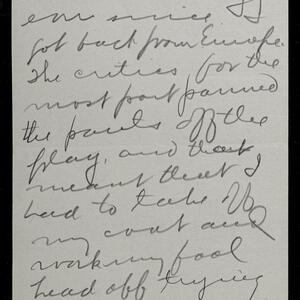 ever since I
got back from Europe.
The critics for the
most part panned
the pants off the
play, and that
meant that I
had to take off
my coat and
work my fool
head off trying